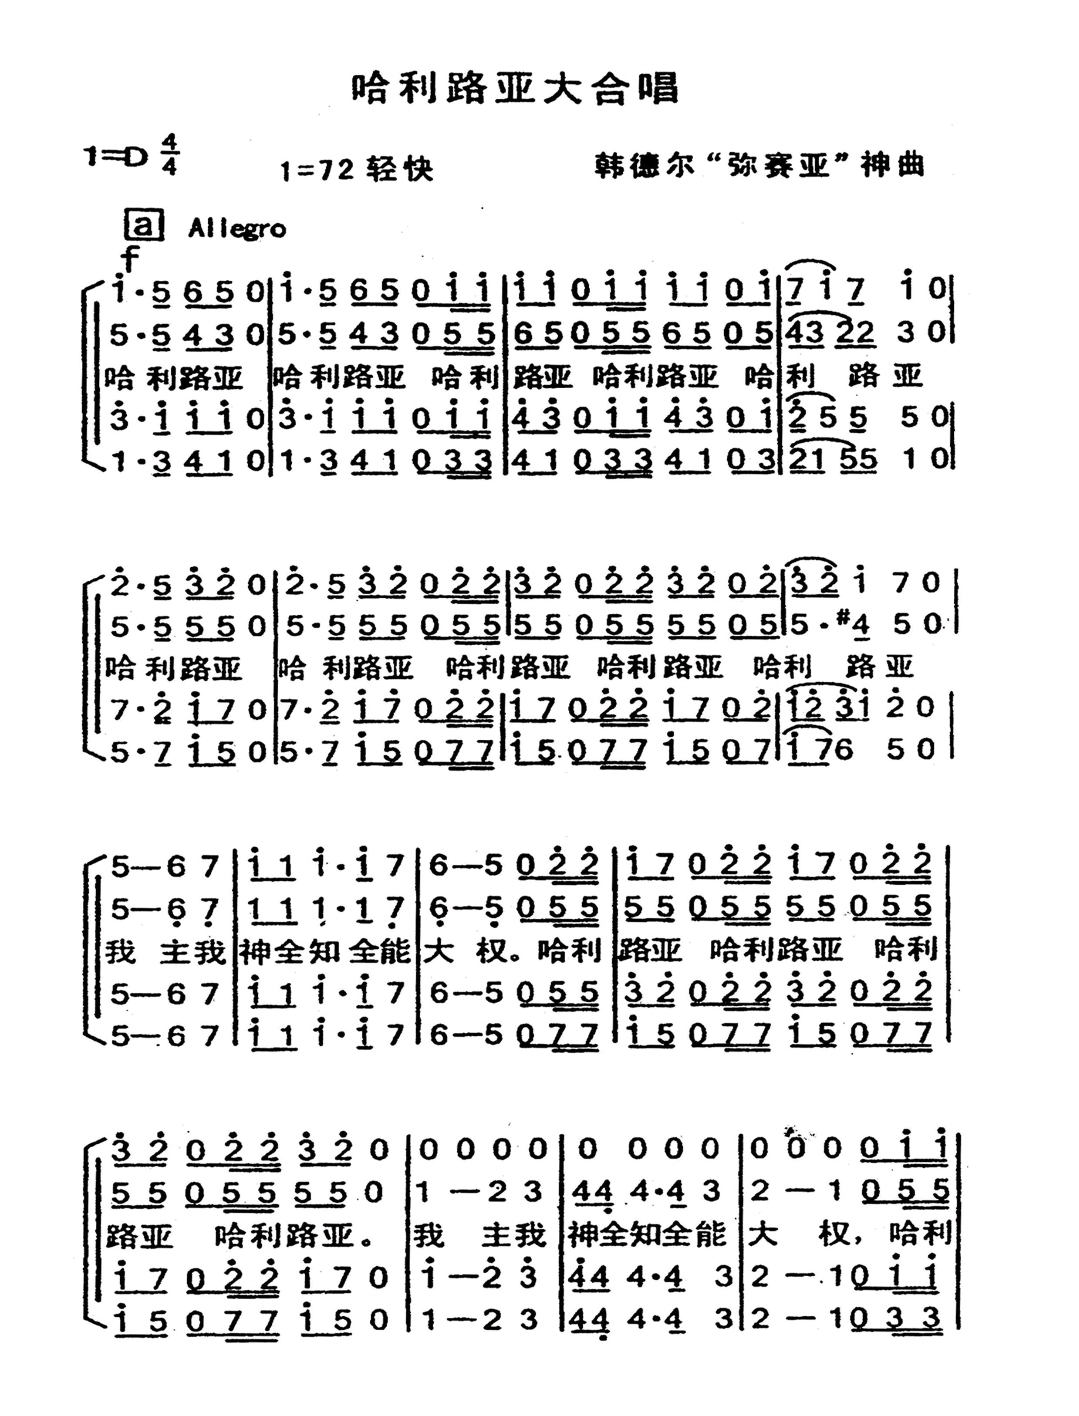 哈利路亚大合唱
1=D 4/4 1=72 轻快 韩德尔“弥赛亚”神曲
a Allegro
f
i·5 650 i·5 650ii ii0ii ii0i 7i7 i0
5·5 430 5·5 43055 65055 6505 4322 30
哈利路亚 哈利路亚 哈利 路亚 哈利路亚 哈利 路亚
3̇·i ii0 3̇·i ii0ii 4̇3̇0ii 4̇3̇0i 2̇55 50
1·3 410 1·3 41033 41033 4103 2155 10
2̇·5 3̇2̇0 2̇·5 3̇2̇02̇2̇ 3̇2̇02̇2̇ 3̇2̇02̇ 3̇2̇i 70
5·5 550 5·5 55055 55055 5505 5·#4 50
哈利路亚 哈利路亚 哈利路亚 哈利路亚 哈利 路亚
7·2̇ i70 7·2̇ i702̇2̇ i702̇2̇ i702̇ i2̇3̇i 2̇0
5·7 i50 5·7 i5077 i5077 i507 i76 50
5—67 i1 i·i7 6—502̇2̇ i702̇2̇ i702̇2̇
5—6̣7̣ 11 1·17̣ 6̣—5̣055 55055 55055
我 主我 神全知全能 大 权。哈利 路亚 哈利路亚 哈利
5—67 i1 i·i7 6—5055 3̇2̇02̇2̇ 3̇2̇02̇2̇
5—67 i1 i·i7 6—5077 i5077 i5077
3̇2̇ 02̇2̇ 3̇2̇0 0000 0 000 0000ii
55 055 550 1—23 44̣ 4·4̣3 2—1055
路亚 哈利路亚。 我 主我 神全知全能 大 权，哈利
i7 02̇2̇ i70 i—2̇3̇ 4̇4 4·4 3 2—10ii
i5 077 i50 1—23 44̣ 4·4 3 2—1033